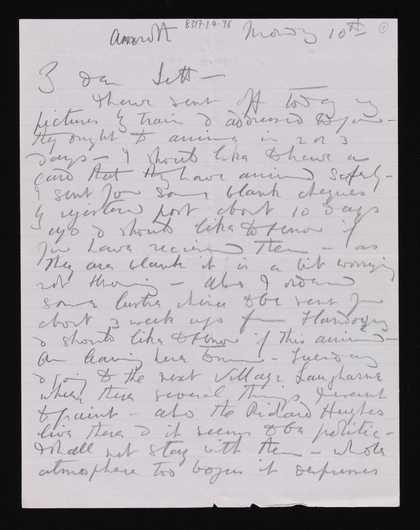 8717.1.2.76
answd
Monday 10th
My dear Sett —
I have sent off today my
pictures by train & addressed to you —
they ought to arrive in 2 or 3
days — I should like to have a
card that they have arrived safely —
I sent you some blank cheques
by registered post about 10 days
ago & should like to know if
you have received them — as
they are blank it is a bit worrying
not knowing — also I ordered
some to be sent you
about 3 week ago from
& should like to know if this arrived —
am leaving here Tuesday
& going to the next village Laugharne
where there several things I want
to paint — also the Richard Hughes
live there & it seems to be politic —
I shall not stay with them — whole
atmosphere too bogus it depresses